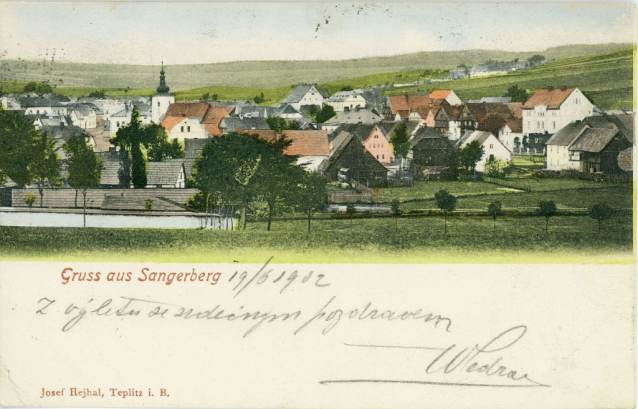 Gruss aus Sangerberg 19/6 1902
Z výletu se srdečným pozdravem
Josef Hejhal, Teplitz i. B.